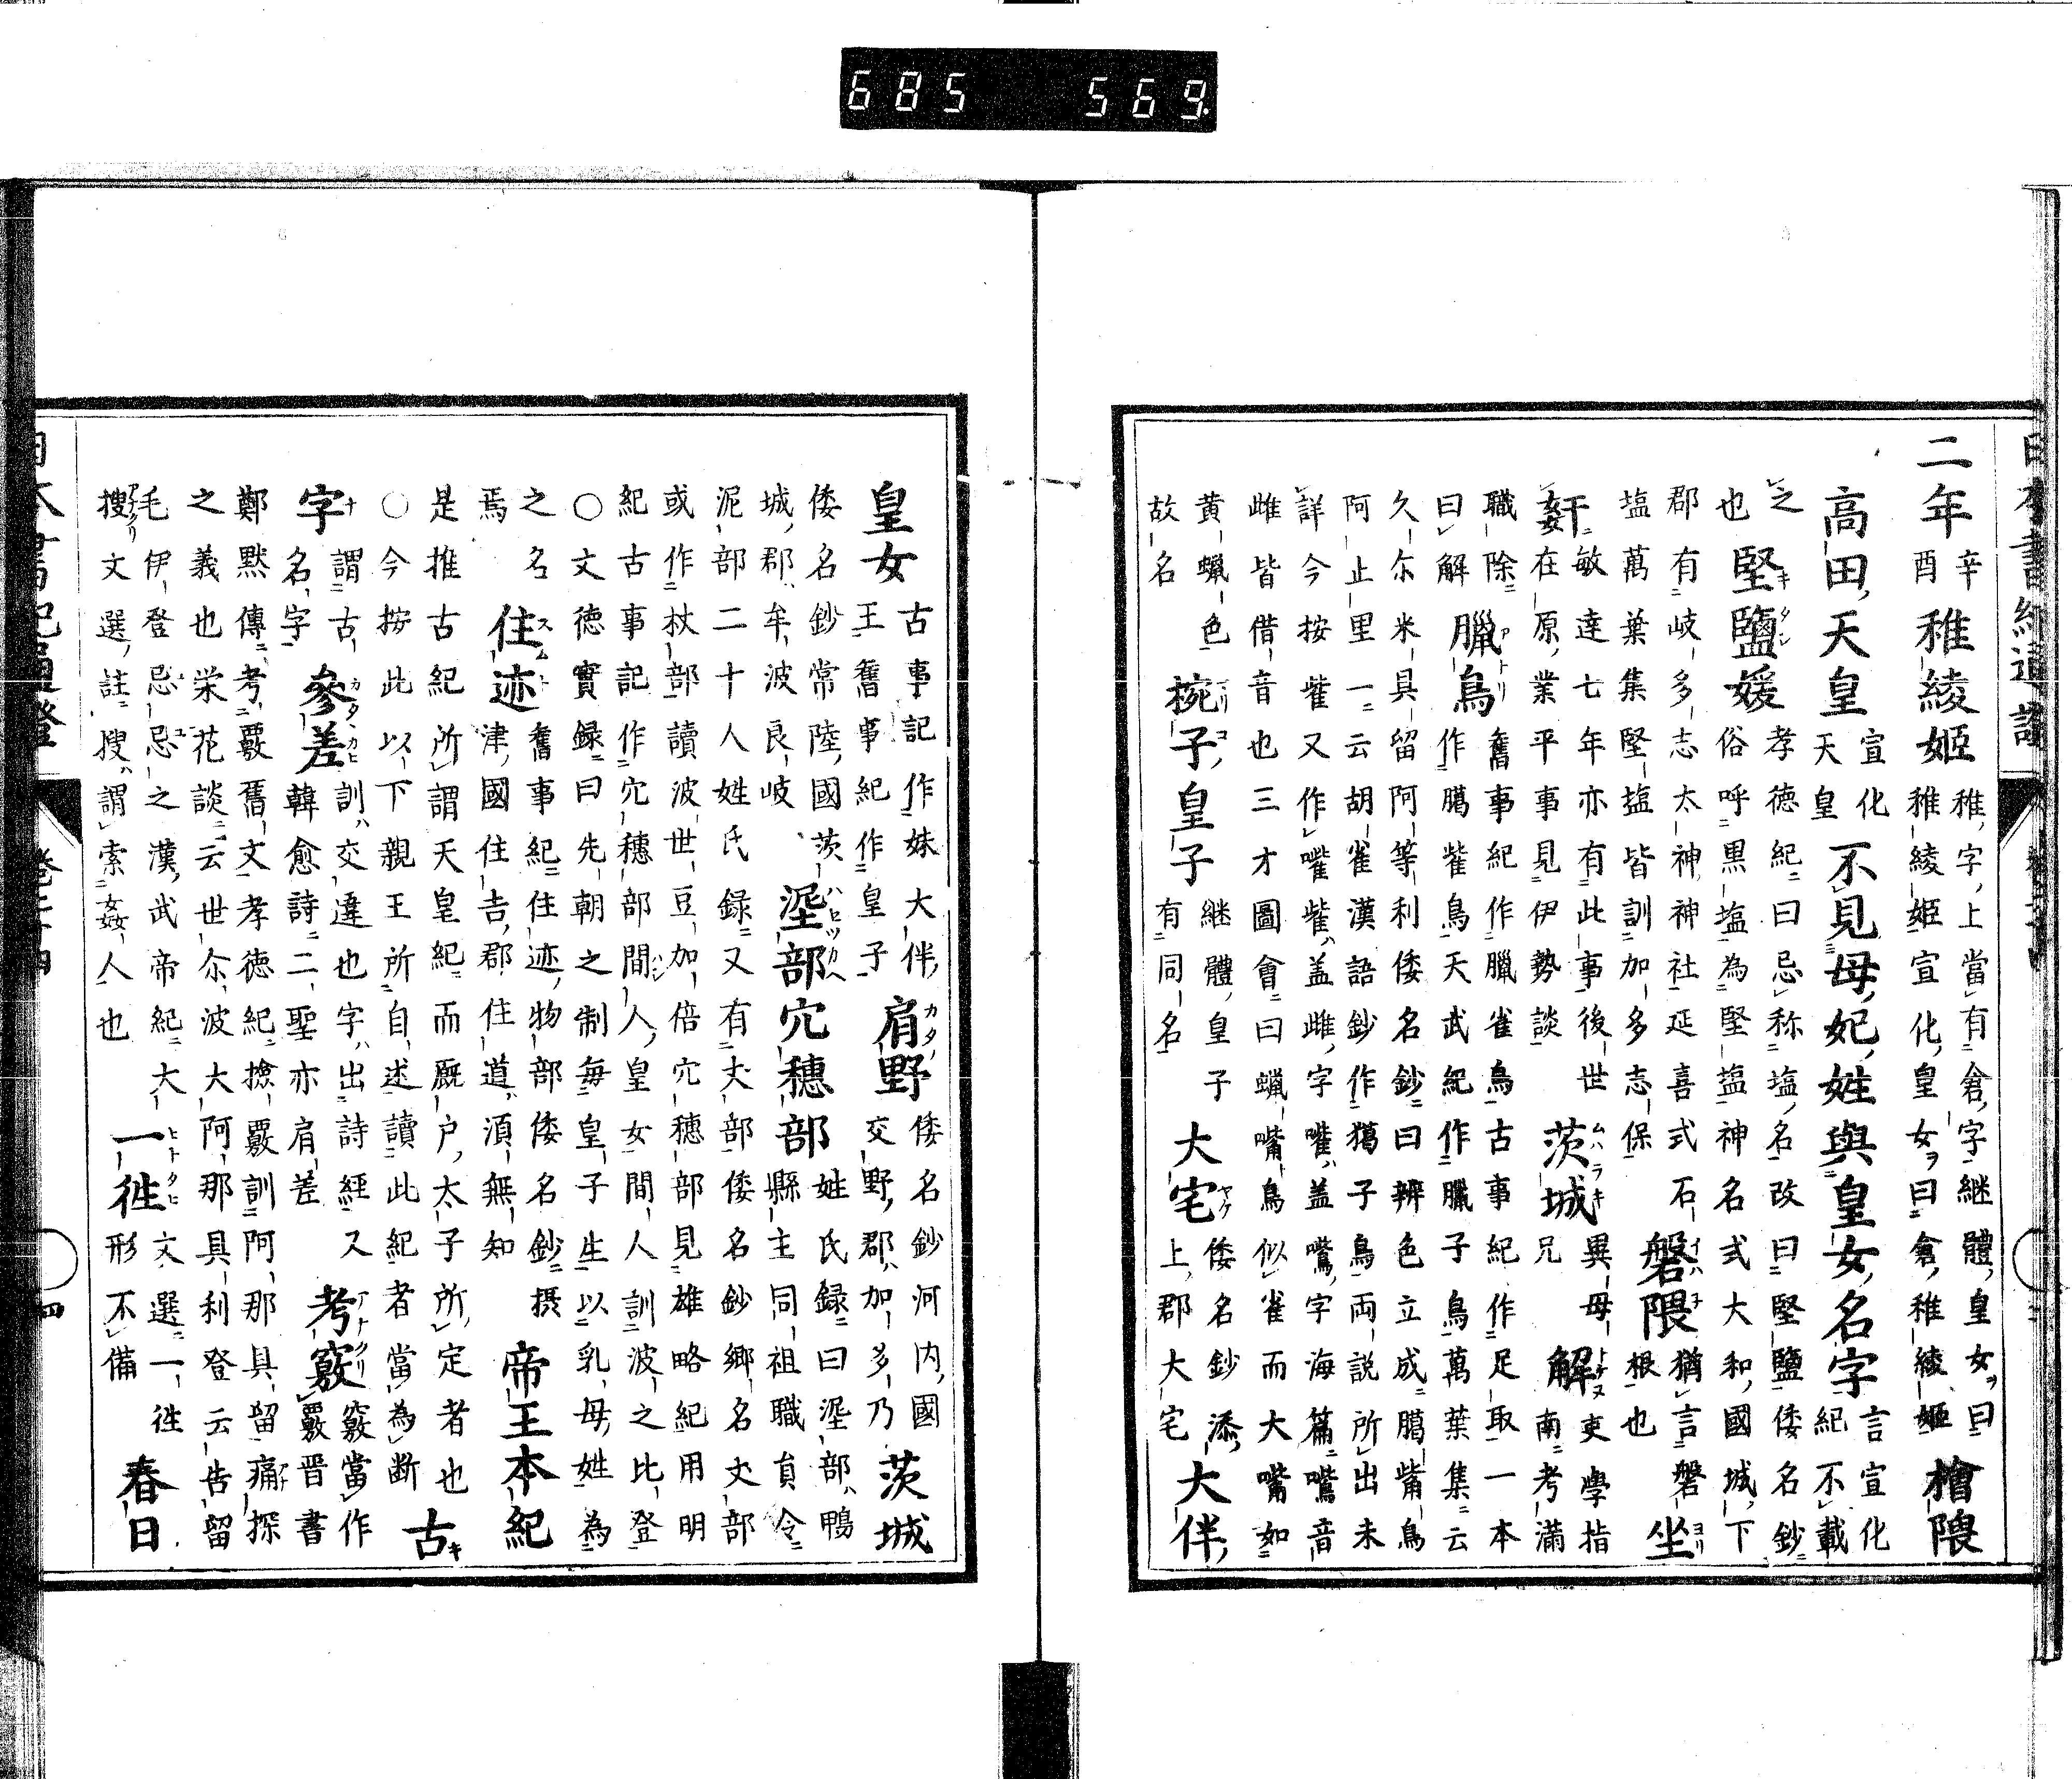 二年
辛
酉
稚綾姫
稚字上當有倉字継體皇女曰
稚綾姫宣化皇女ヲ曰倉稚綾姫
檜隈
高田天皇
宣化
天皇
不見母妃姓與皇女名字
言宣化
紀不載
之
也
堅鹽媛
孝徳紀曰忌称塩名改曰堅鹽倭名鈔
俗呼黒塩為堅塩神名式大和國城下
郡有岐多志太神神社延喜式石
塩萬葉集堅塩皆訓加多志保
磐隈
猶言磐
根也
坐
姧
敏達七年亦有此事後世
在原業平事見伊勢談
茨城
異母
兄
解
吏學指
南考滿
職除
曰解
臘鳥
舊事紀作臘雀鳥古事紀作足取一本
作鵰觜鳥天武紀作臘子鳥萬葉集云
久尓米具留阿等利倭名鈔曰辨色立成鵰觜鳥
阿止里一云胡雀漢語鈔作獦子鳥両説所出未
詳今按觜又作嘴觜盖雌字嘴盖鷕字海篇鷕音
雌皆借音也三才圖會曰蝋嘴鳥似雀而大嘴如
黄蝋色
故名
椀子皇子
継體皇子
有同名
大宅
倭名鈔添
上郡大宅
大伴
皇女
古事記作妹大伴
王舊事紀作皇子
肩野
倭名鈔河内國
交野郡加多乃
茨城
倭名鈔常陸國茨
城郡牟波良岐
埿部穴穗部
姓氏録曰埿部鴨
縣主同祖職員令
泥部二十人姓氏録又有丈部倭名鈔郷名丈部
或作杖部讀波世豆加倍穴穗部見雄略紀用明
紀古事記作穴穗部間人皇女間人訓波之比登
○文徳實録曰先朝之制毎皇子生以乳母姓為
之名
焉
住迹
舊事紀住迹物部倭名鈔摂
津國住吉郡住道須無知
帝王本紀
是推古紀所謂天皇紀而厩戸太子所定者也
○今按此以下親王所自述讀此紀者當為断
古
字
謂古
名字
參差
訓交違也字出詩經又
韓愈詩二聖亦肩差
考竅
竅當作
覈晋書
鄭黙傳考覈舊文孝徳紀撿覈訓阿那具留痛探
之義也栄花談云世尓波大阿那具利登云告留
毛伊登忌忌之漢武帝紀大
搜文選註搜謂索姦人也
一徃
文選一徃
形不備
春日